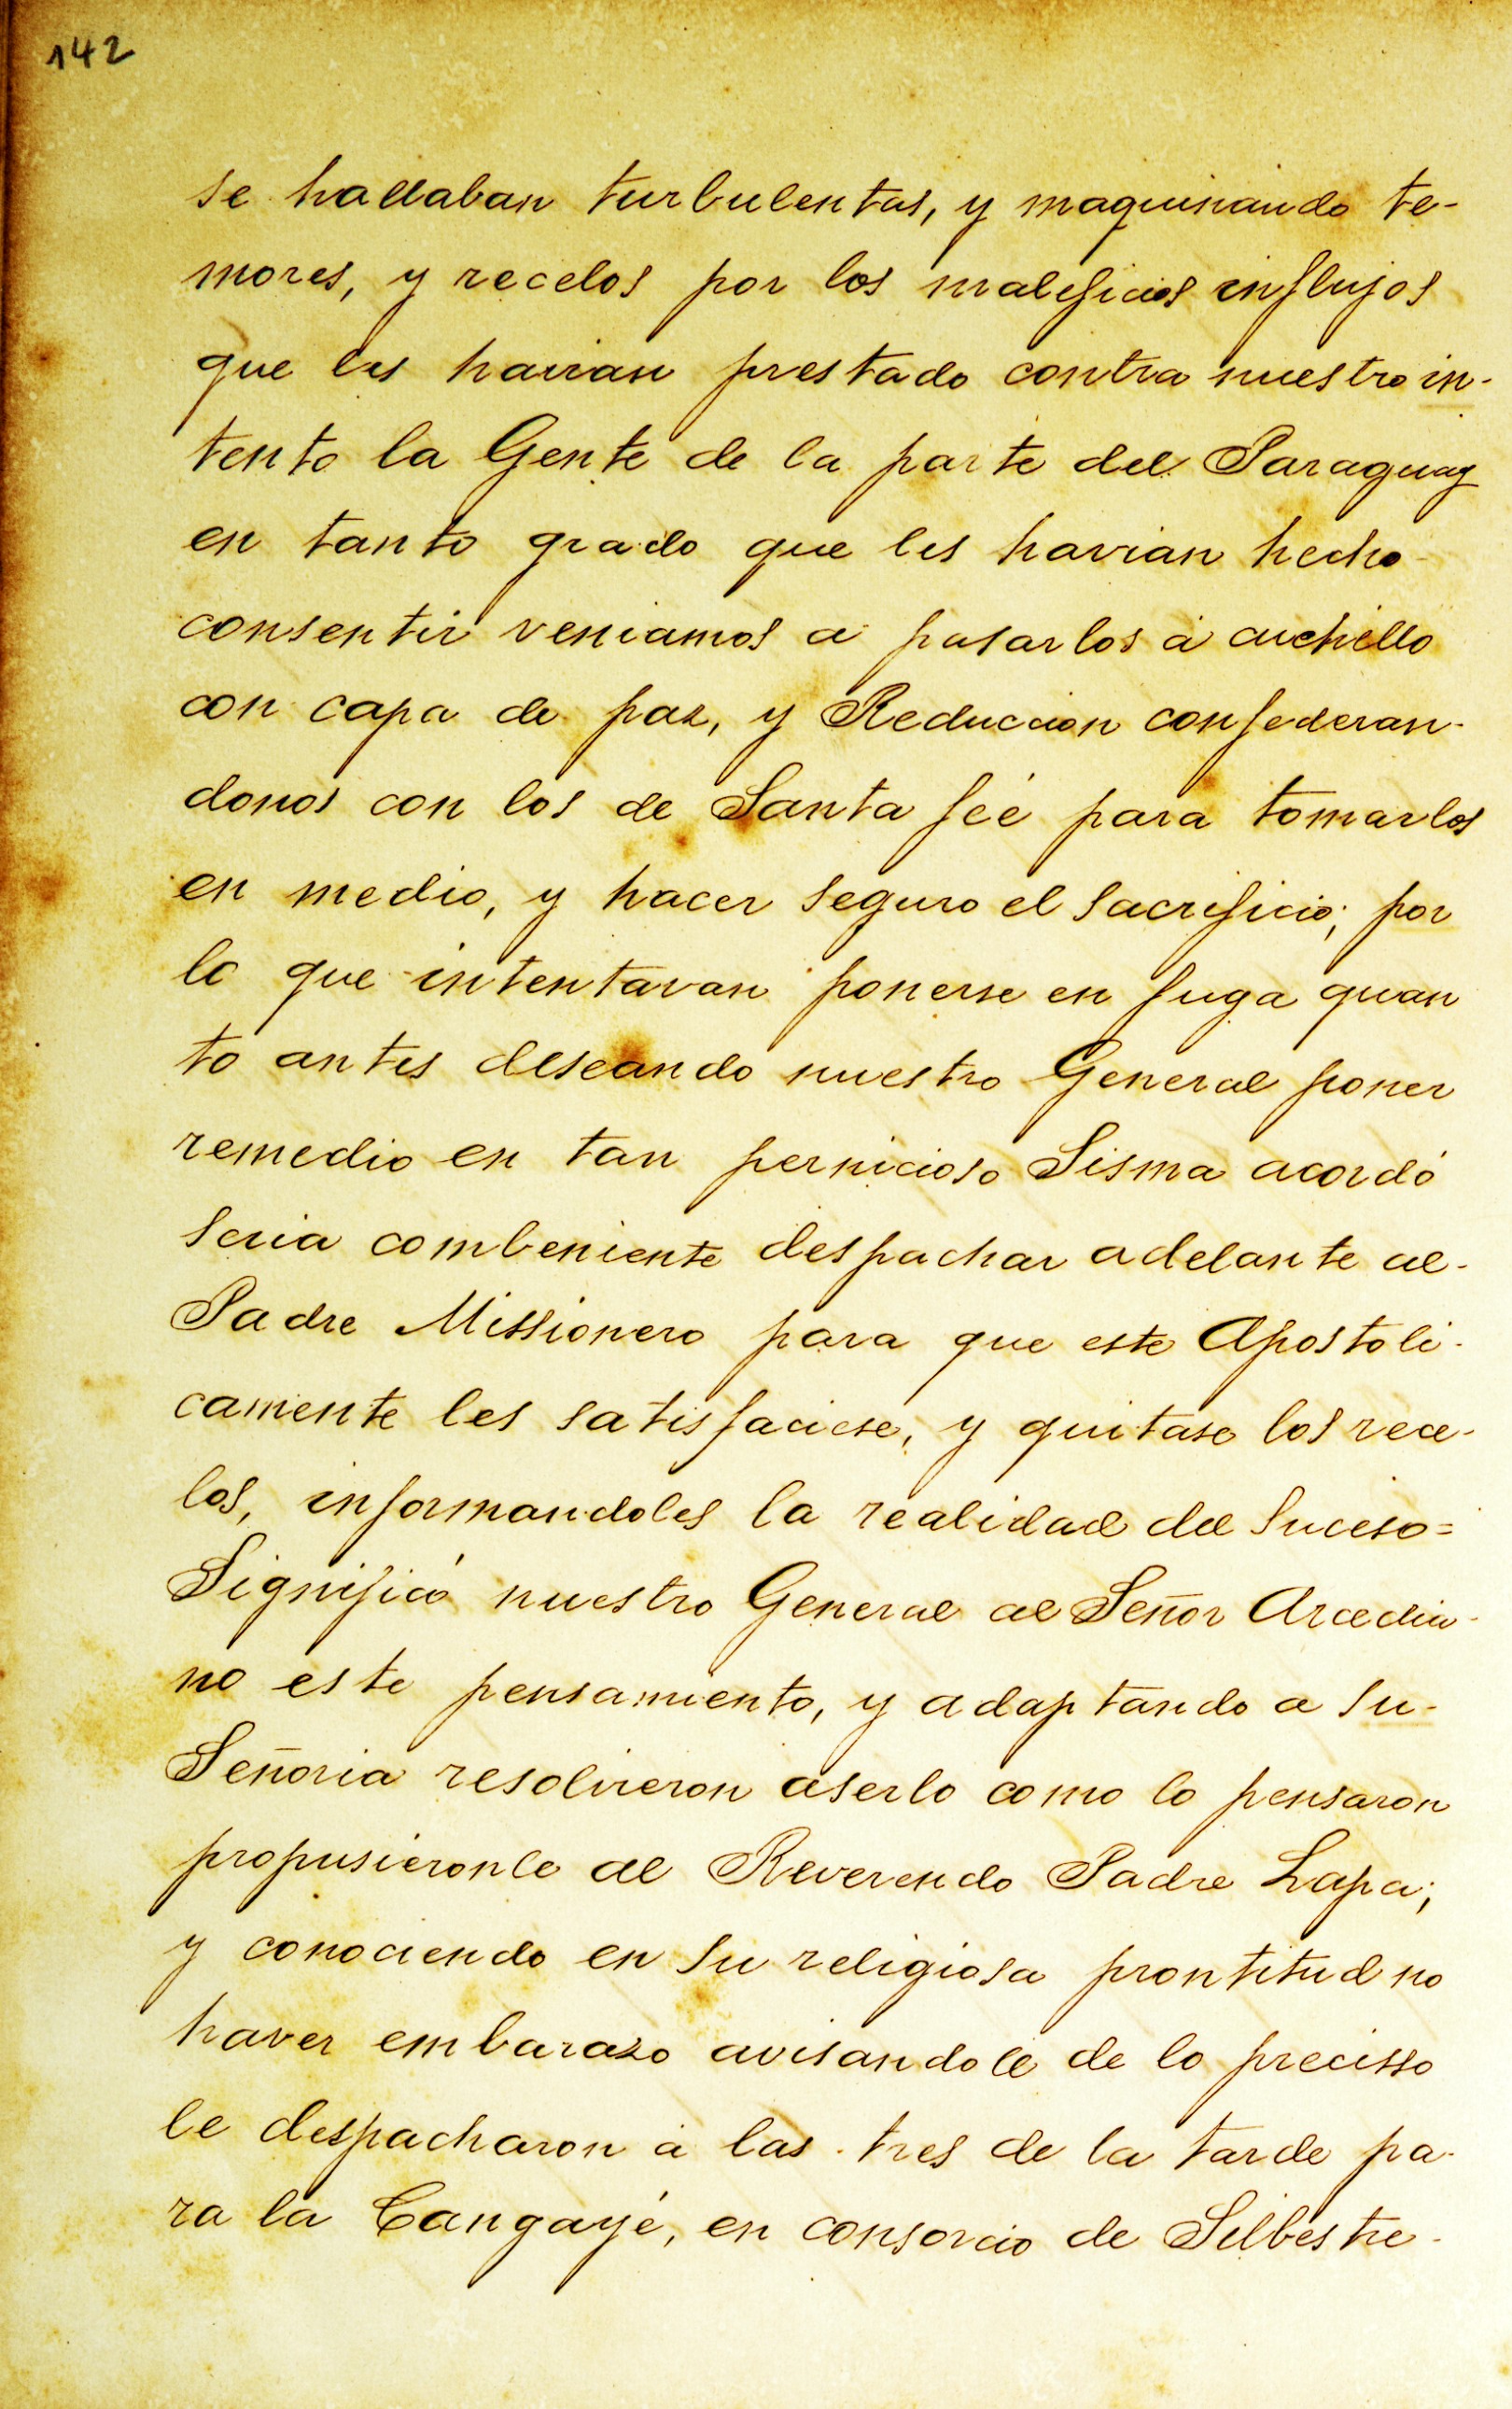 142
se hallaban turbulentas, y maquinando te-
mores, y recelos por los maleficios influjos
que les havian prestado contra nuestro in-
tento la Gente de la parte del Paraguay
en tanto grado que les havian hecho
consentir veniamos a pasarlos á cuchillo
con capa de paz, y Reduccion confederan-
donos con los de Santa feé para tomarlos
en medio, y hacer seguro el sacrificio; por
lo que intentavan ponerse en fuga quan
to antes deseando nuestro General poner
remedio en tan pernicioso Sisma acordó
seria combeniente despachar adelante al-
Padre Missionero para que este Apostoli-
camente les satisfaciese, y quitase los rece-
los, informandoles la realidad del suceso=
Significó nuestro General al Señor Arcedia-
no este pensamiento, y adaptando a su-
Señoria resolvieron aserlo como lo pensaron
propusieronle al Reverendo Padre Lapa;
y conociendo en su religiosa prontitud no
haver embarazo avisandole de lo precisso
le despacharon á las tres de la tarde pa-
ra la Cangayé, en consorcio de Silbestre-